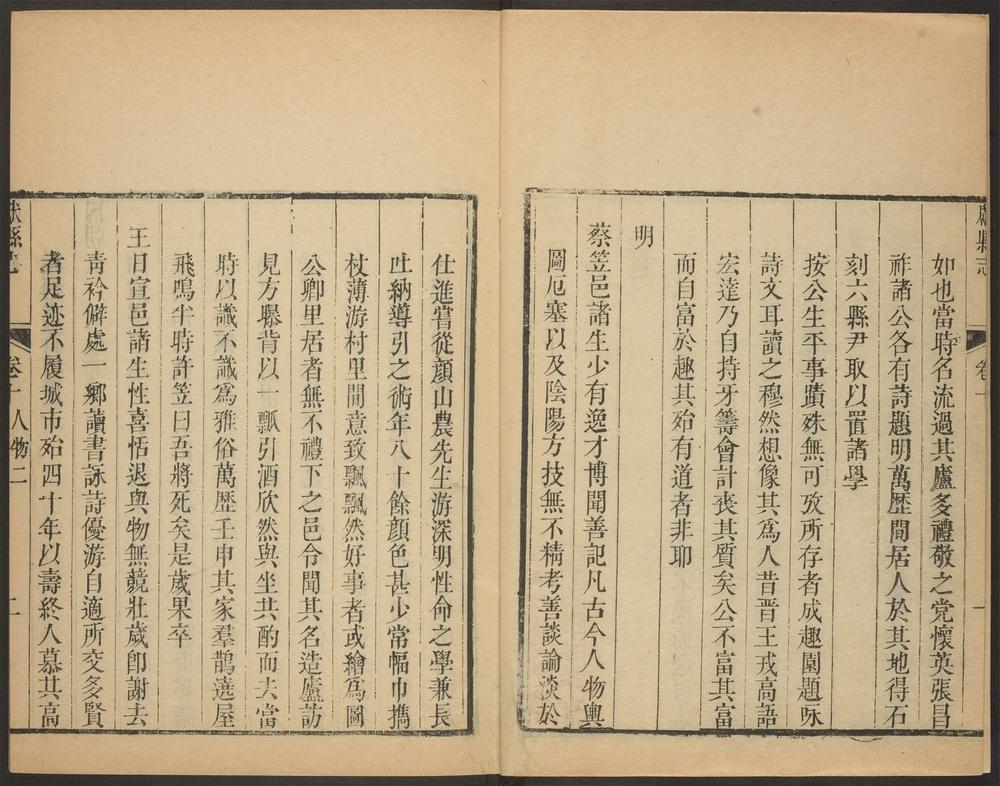 如也當時名流過其廬多禮敬之党懷英張昌
祚諸公各有詩題明萬歷間居人於其地得石
刻六縣尹取以置諸學
按公生平事蹟殊無可攷所存者成趣園題詠
詩文耳讀之穆然想像其爲人昔晋王戎高語
宏達乃自持牙籌會計喪其質矣公不富其富
而自富於趣其殆有道者非耶
明
蔡笠邑諸生少有逸才博聞善記凡古今人物輿
圖厄塞以及陰陽方技無不精考善談論淡於
仕進嘗從顔山農先生游深明性命之學兼長
吐納導引之術年八十餘顔色甚少常幅巾攜
杖薄游村里間意致飄飄然好事者或繪爲圖
公卿里居者無不禮下之邑令聞其名造廬訪
見方曝背以一瓢引酒欣然與坐共酌而去當
時以識不識爲雅俗萬歷壬申其家羣鵲遶屋
飛鳴半時許笠曰吾將死矣是歲果卒
王日宣邑諸生性喜恬退與物無競壯歲卽謝去
靑衿僻處一鄉讀書詠詩優游自適所交多賢
者足迹不履城市殆四十年以壽終人慕其高
獻縣志
卷十人物二
二